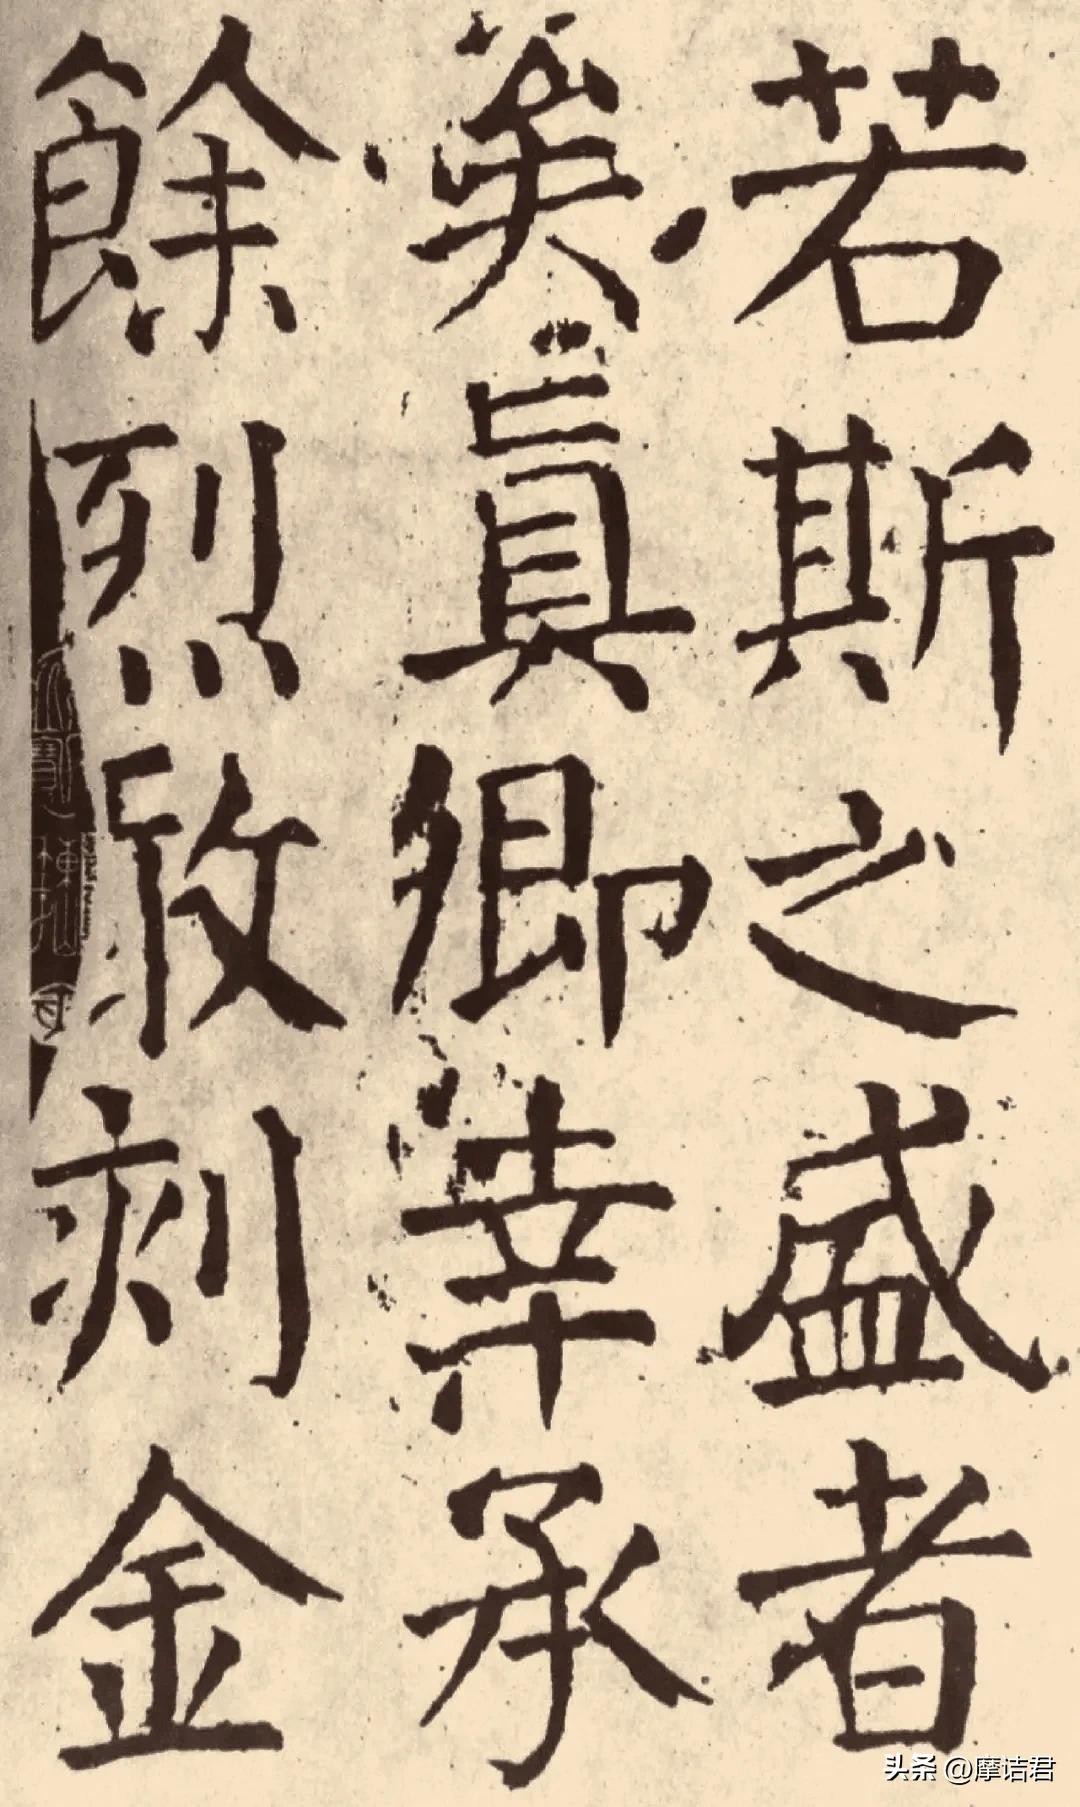 若斯之盛者
矣真卿幸承
餘烈敢刻金
头条 @摩诘君